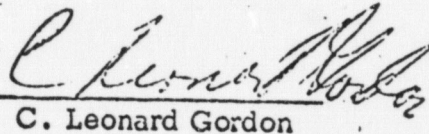 C Leonard Gordon
C. Leonard Gordon